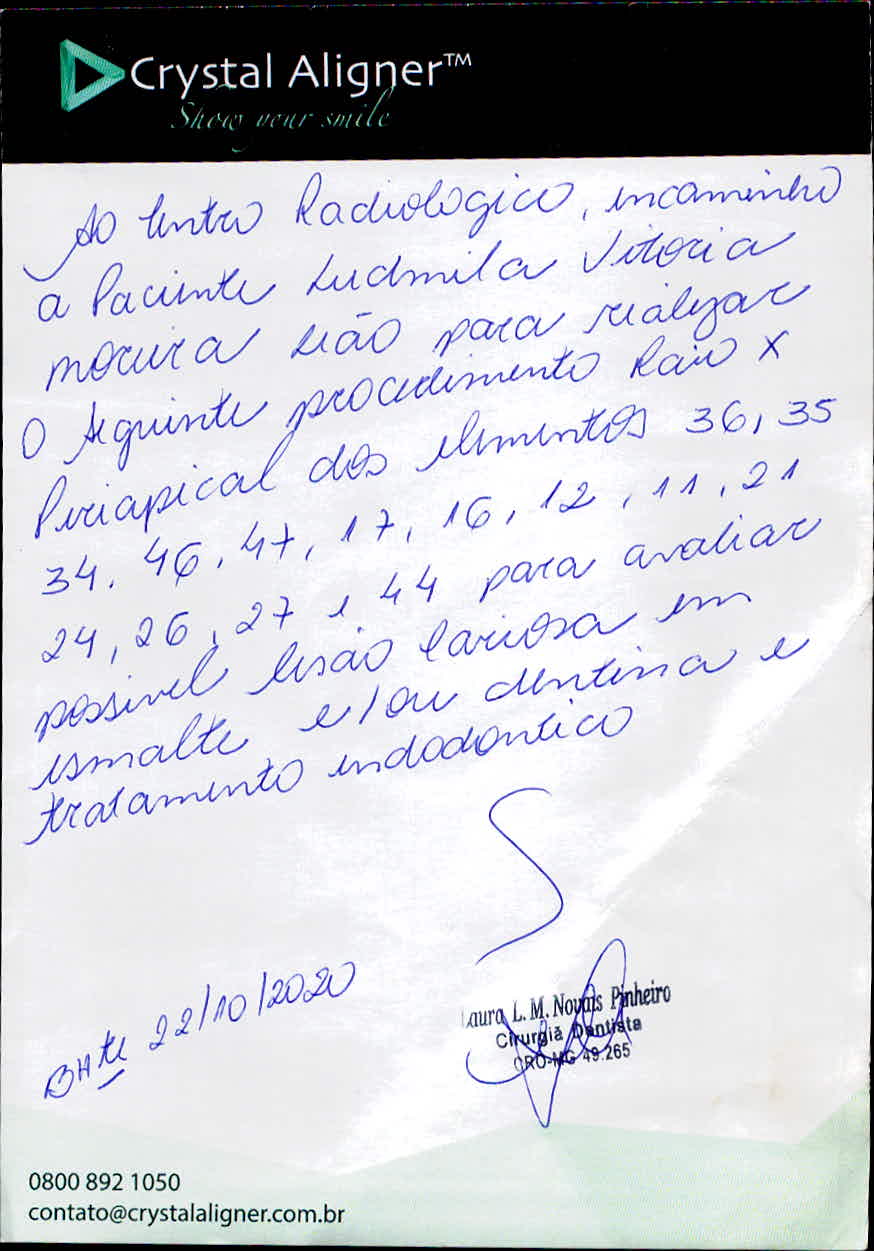 Crystal Aligner™
Show your smile
Ao Centro Radiologico, incaminho
a Paciente Ludmila Vitoria
moreira Leão para realizar
o seguinte procedimento Raio X
Periapical dos elementos 36, 35
34, 46, 47, 17, 16, 12, 11, 21
24, 26, 27 e 44 para avaliar
possivel lesão cariosa em
esmalte e/ou dentina e
tratamento endodontico
BHte 22/10/2020
Laura L. M. Novais Pinheiro
Cirurgiã Dentista
CRO-MG 49.265
0800 892 1050
contato@crystalaligner.com.br